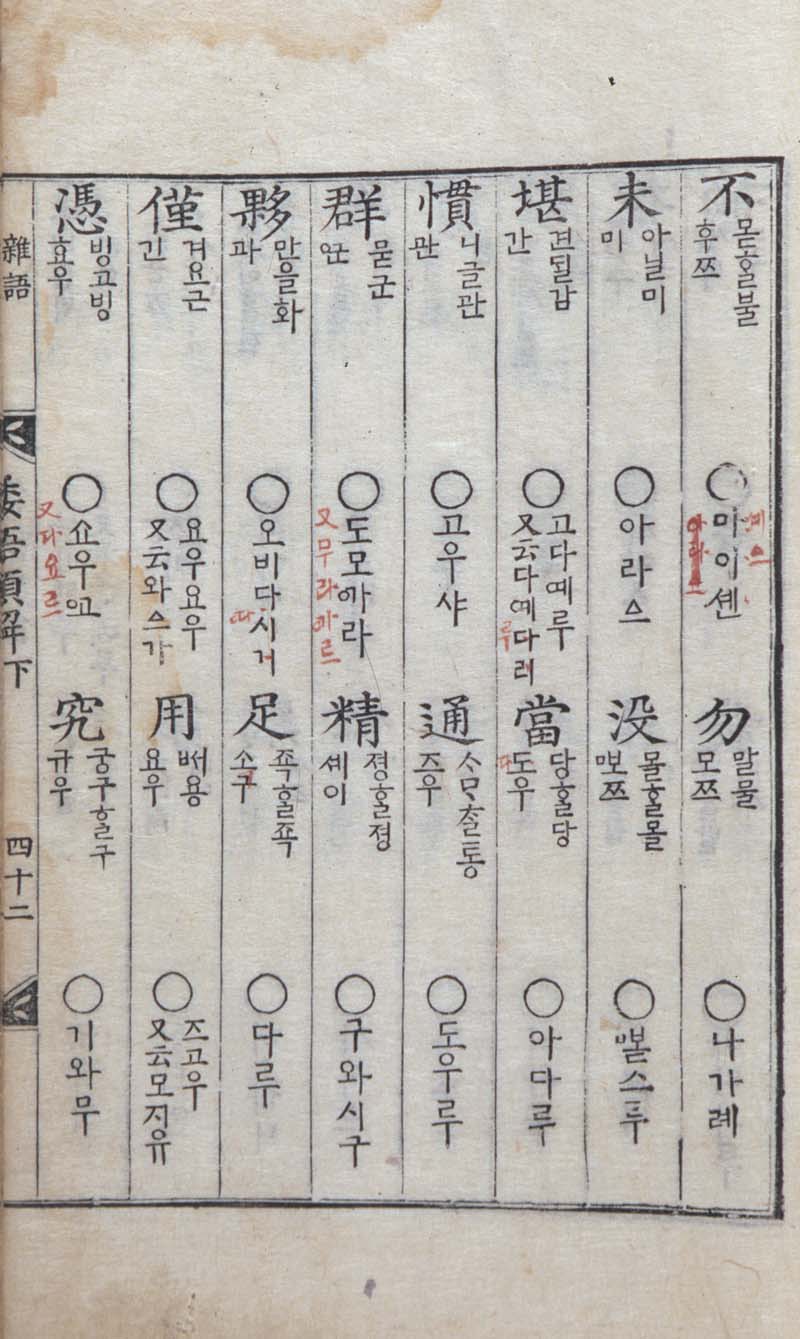 不 몯ᄒᆞᆯ불 후쯔 ○ 마이셴 勿 말물 모쯔 ○ 나가례
未 아닐미 미 ○ 아라스 没 몰ᄒᆞᆯ몰 ○
堪 견딀감 간 ○ 고다예루 又云다예다려 루 當 당ᄒᆞᆯ당 도우 다 ○ 아다루
慣 니글관 관 ○ 고우샤 通 ᄉᆞᄆᆞᄎᆞᆯ통 즈우 ○ 도우루
群 묻군 ○ 도모ᄭᅡ라 又무라ᄭᅡ르 精 졍ᄒᆞᆯ졍 셰이 ○ 구와시구
夥 만을화 과 ○ 오비다시거 ᄯᅡ 足 죡ᄒᆞᆯ죡 소구 ○ 다루
僅 겨요근 긴 ○ 요우요우 又云와스가 用 ᄡᅥ용 요우 ○ 즈고우 又云모지유
憑 빙고빙 효우 ○ 쇼우 又다요르 究 궁구ᄒᆞᆯ구 규우 ○ 기와무
雜語 倭語類解下 四十二